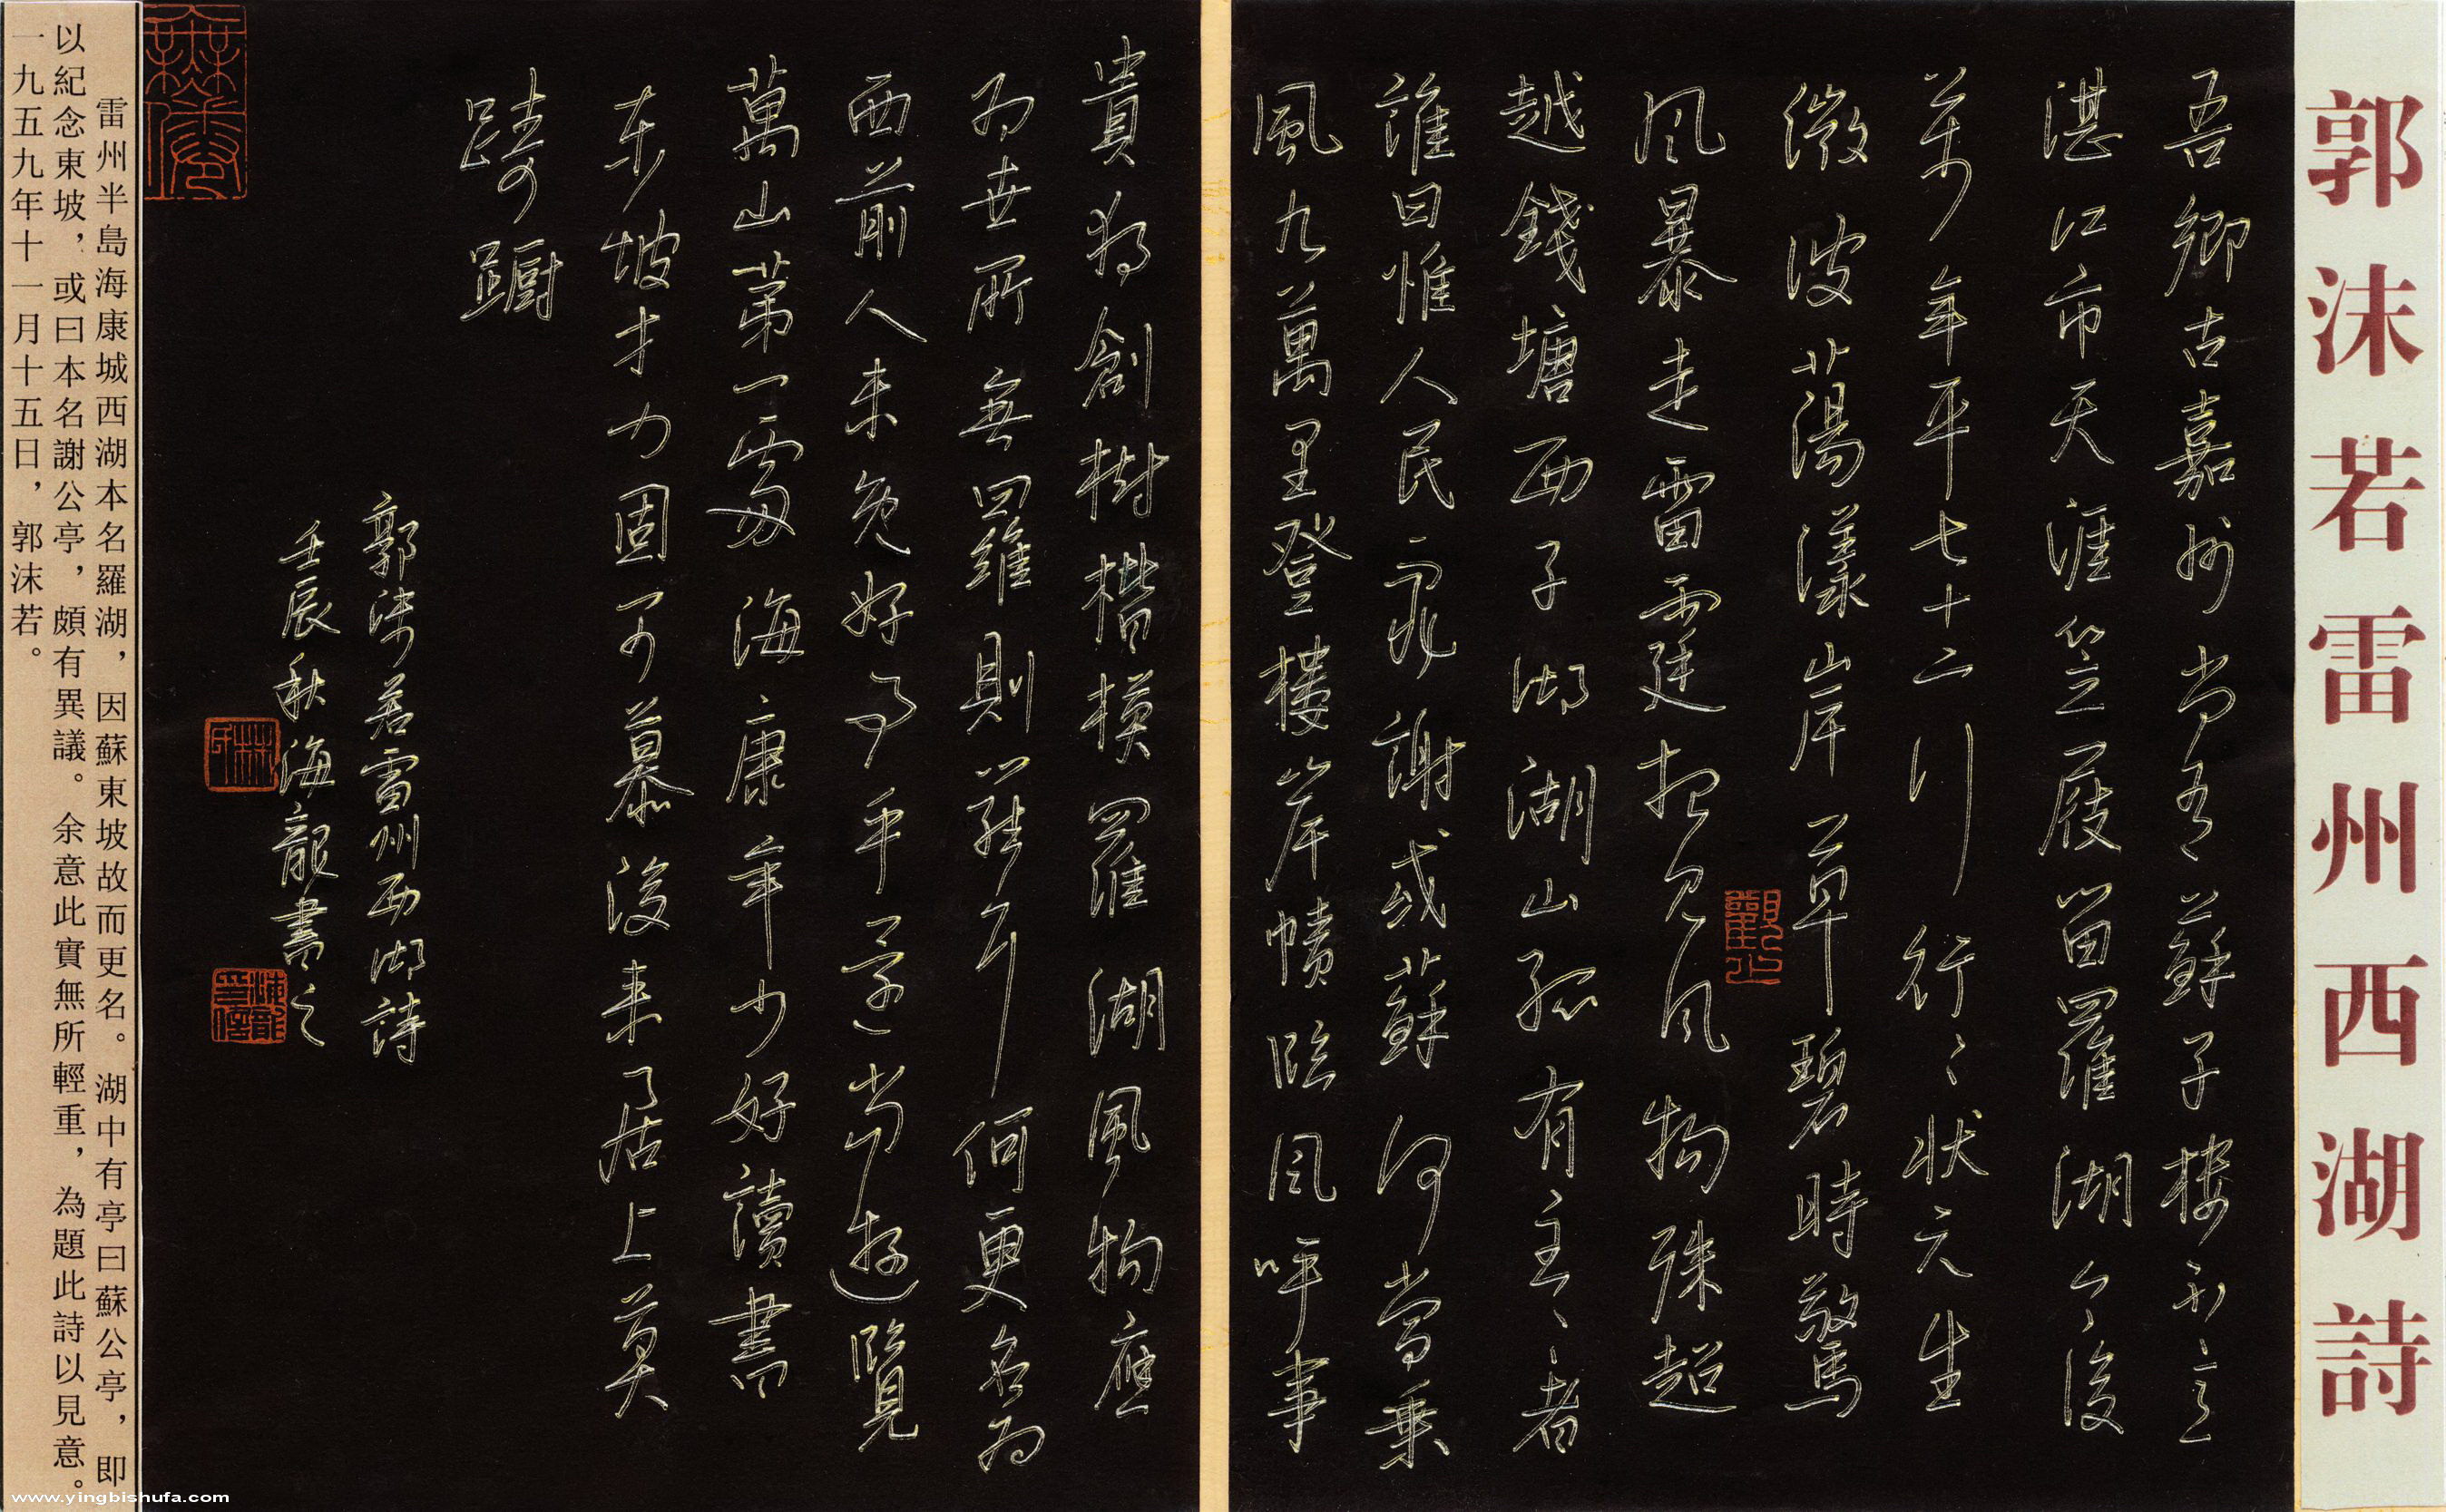 郭沫若雷州西湖詩
吾鄉古嘉州尚有蘇子樓不意
湛江市天涯笠屐留羅湖今後
萬年平七十二川行行狀元生
微波蕩漾岸草碧時驚
風暴走雷霆抱見風物殊超
越錢塘西子湖湖山孤有主主者
誰曰惟人民宗謝或蘇何當乘
風九萬里登樓岸幘臨風呼事
貴獨創樹楷模羅湖風物應
為世所無回羅則羅耳何更名為
西前人未免好事乎子尚遊覽
萬山第一處海康年少好讀書
東坡才力固可慕後来居上莫
踌蹰
郭沫若雷州西湖詩
壬辰秋海龍書之
雷州半島海康城西湖本名羅湖，因蘇東坡故而更名。湖中有亭曰蘇公亭，即
以紀念東坡，或曰本名謝公亭，頗有異議。余意此實無所輕重，為題此詩以見意。
一九五九年十一月十五日，郭沫若。
www.yingbishufa.com